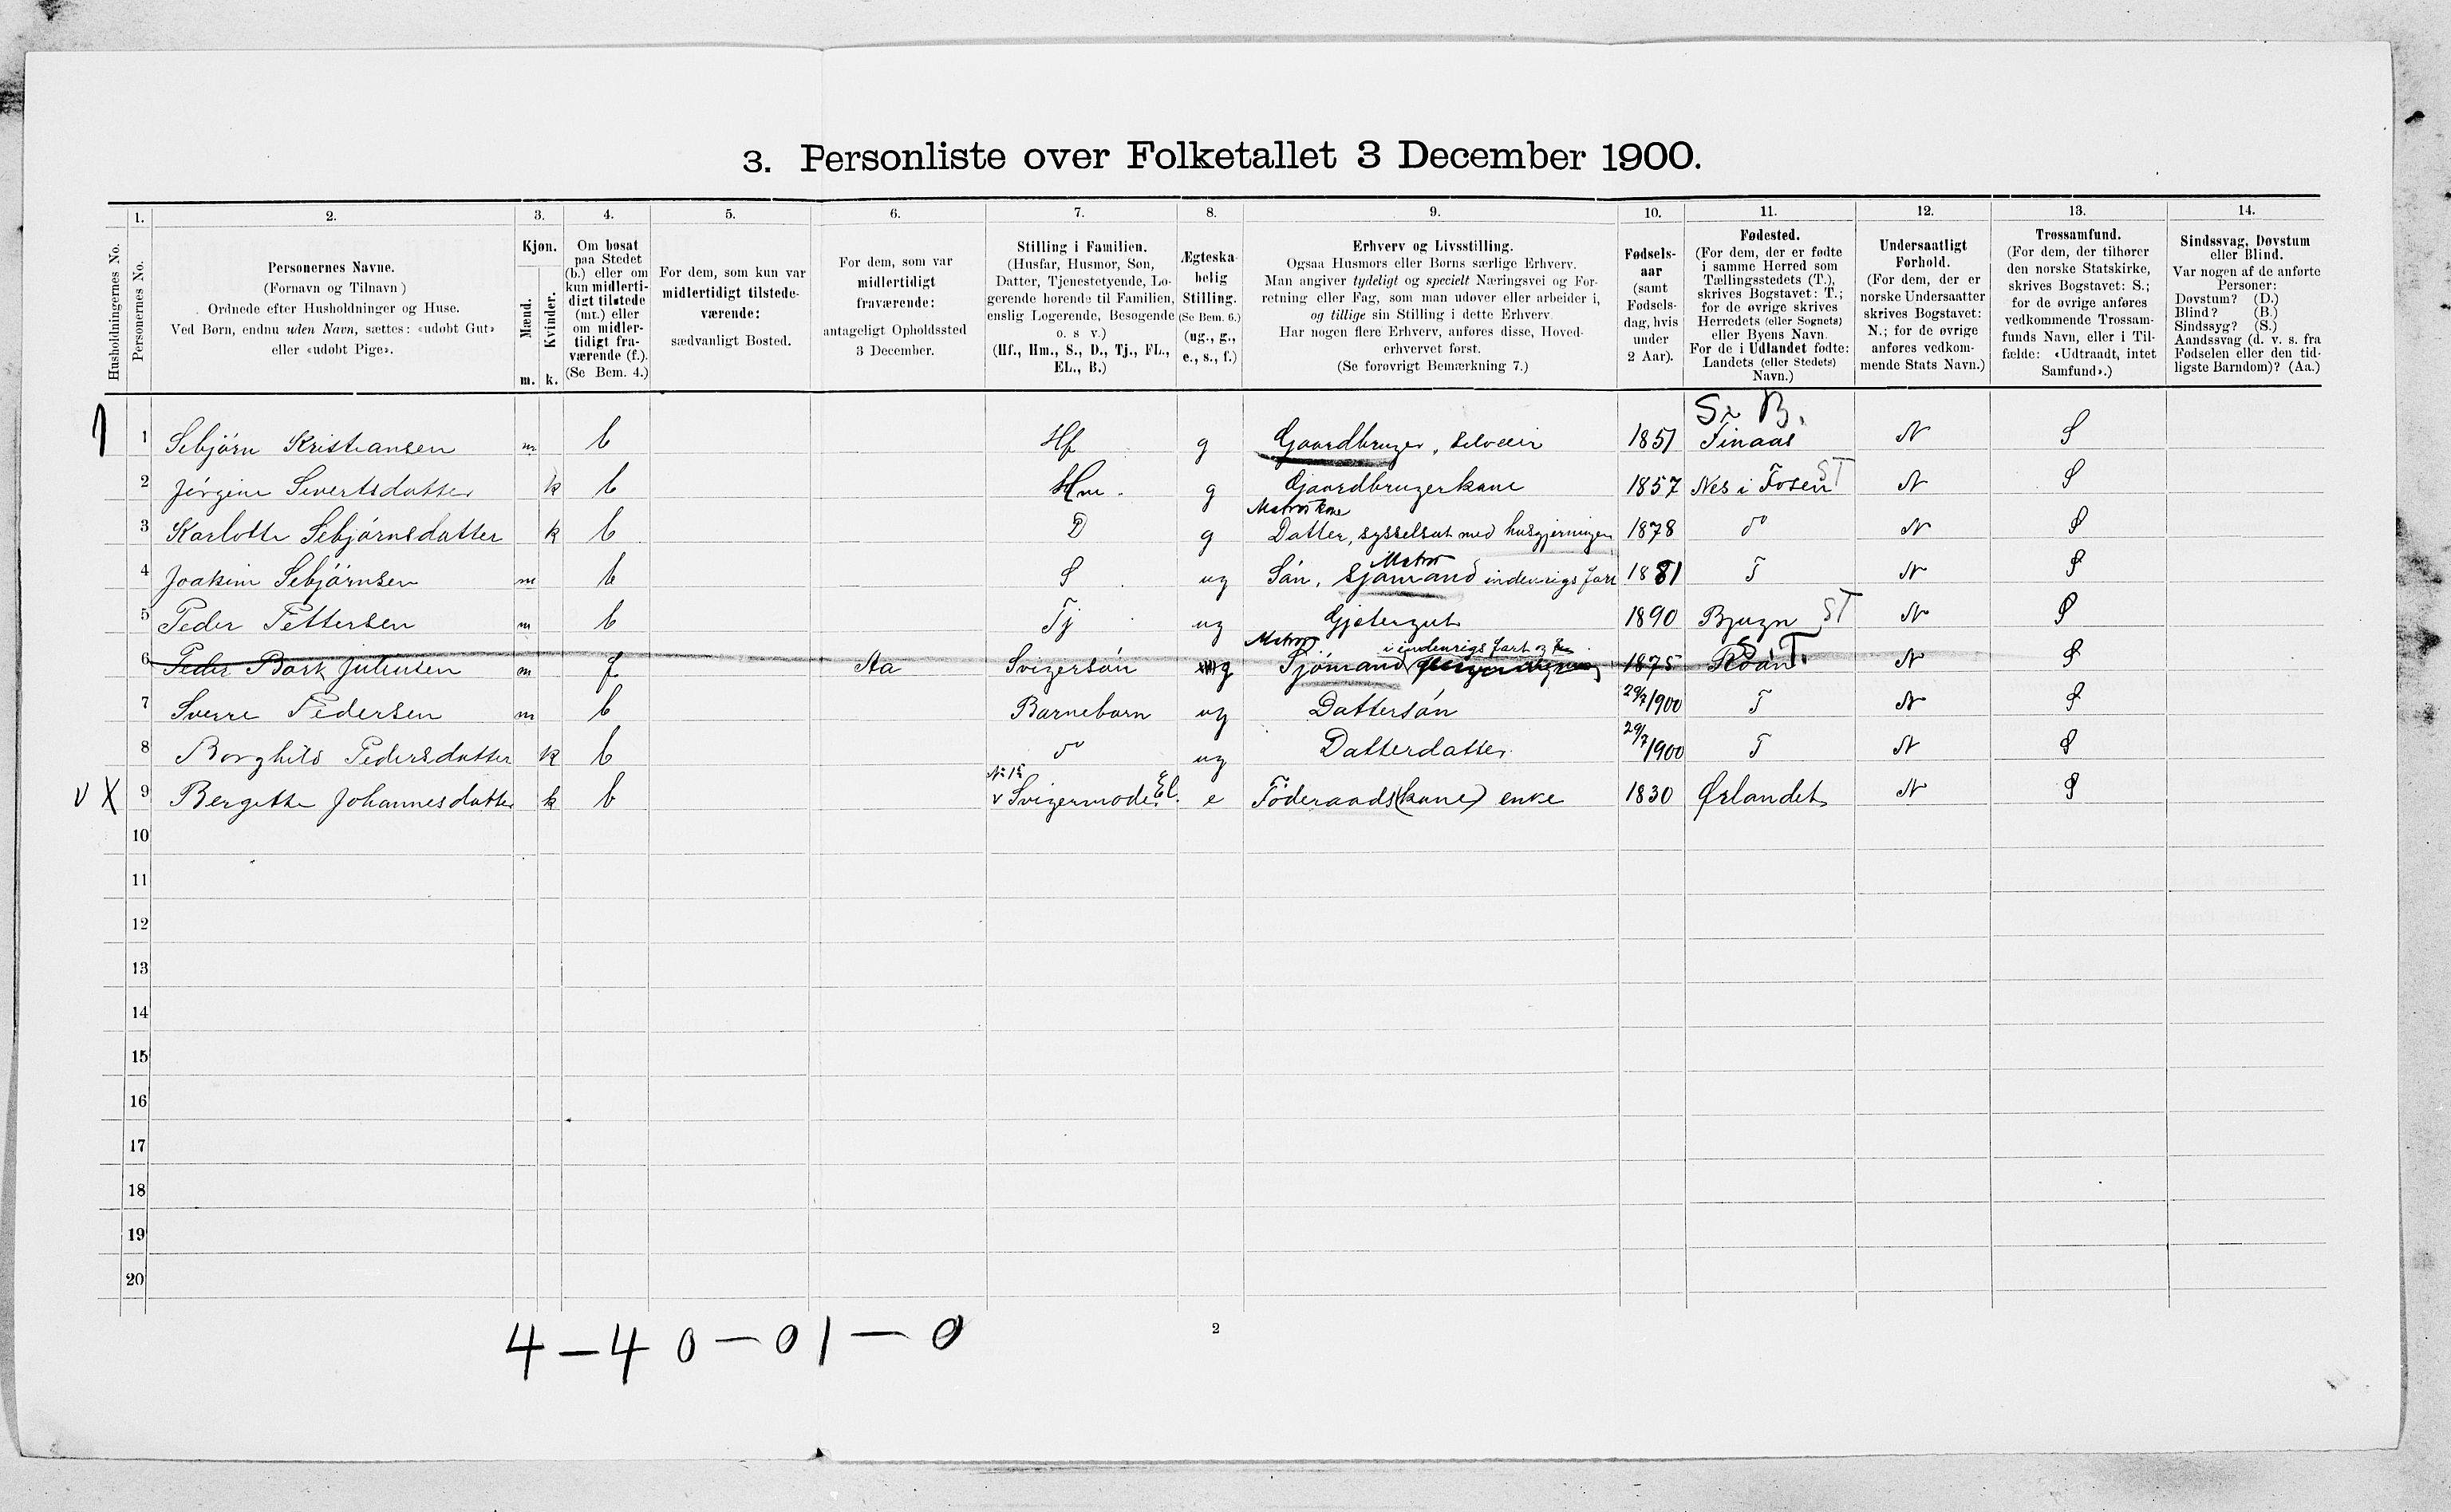 3. Personliste over Folketallet 3 December 1900.
1. 2. 3. 4. 5. 6. 7. 8. 9. 10. 11. 12. 13. 14.
Husholdningernes No.
Personernes No.
Personernes Navne.
(Fornavn og Tilnavn)
Ordnede efter Husholdninger og Huse.
Ved Børn, endnu uden Navn, sættes: «udøbt Gut»
eller «udøbt Pige».
Kjøn.
Mænd.
Kvinder.
m. k.
Om bosat
paa Stedet
(b.) eller om
kun midlerti-
digt tilstede
(mt.) eller
om midler-
tidigt fra-
værende (f.).
(Se Bem. 4.)
For dem, som kun var
midlertidigt tilstede-
værende:
sædvanligt Bosted.
For dem, som var
midlertidigt
fraværende:
antageligt Opholdssted
3 December.
Stilling i Familien.
(Husfar, Husmor, Søn,
Datter, Tjenestetyende, Lo-
gerende hørende til Familien,
enslig Logerende, Besøgende
o. s v.)
(Hf., Hm., S., D., Tj., FL.,
EL., B.)
Ægteska-
belig
Stilling.
(Se Bem. 6.)
(ug., g.,
e., s., f.)
Erhverv og Livsstilling.
Ogsaa Husmors eller Børns særlige Erhverv.
Man angiver tydeligt og specielt Næringsvei og For-
retning eller Fag, som man udøver eller arbeider i,
og tillige sin Stilling i dette Erhverv.
Har nogen flere Erhverv, anføres disse, Hoved-
erhvervet først.
(Se forøvrigt Bemærkning 7.)
Fødsels-
aar
(samt
Fødsels-
dag, hvis
under
2 Aar).
Fødested.
(For dem, der er fødte
i samme Herred som
Tællingsstedets (T.),
skrives Bogstavet: T.;
for de øvrige skrives
Herredets (eller Sognets)
eller Byens Navn.
For de i Udlandet fødte:
Landets (eller Stedets)
Navn.)
Undersaatligt
Forhold.
(For dem, der er
norske Undersaatter
skrives Bogstavet:
N.; for de øvrige
anføres vedkom-
mende Stats Navn.)
Trossamfund.
(For dem, der tilhører
den norske Statskirke,
skrives Bogstavet: S.;
for de øvrige anføres
vedkommende Trossam-
funds Navn, eller i Til-
fælde: «Udtraadt, intet
Samfund».)
Sindssvag, Døvstum
eller Blind.
Var nogen af de anførte
Personer:
Døvstum? (D.)
Blind? (B.)
Sindssyg? (S.)
Aandssvag (d. v. s. fra
Fødselen eller den tid-
ligste Barndom)? (Aa.)
B.
1 1 Sebjörn Kristiansen m b Hf g Gaardbruger, selveier 1851 Finaas N S
2 Jörgine Sivertsdatter k b Hm. g Gaardbrugerkone 1857 Nes i Fosen ST N S
Matroskone
3 Karlotte Sebjörnsdatter k b D g Datter, sysselsat med husgjerningen 1878 do N S
Matros
4 Joakim Sebjörnsen m b S ug Sön, Sjömand indenrigs fart 1881 T N S
5 Peder Pettersen m b Tj ug Gjetergut 1890 Bjugn ST N S
Matros i indenrigs fart og
6 Peder Bark Juliusen m f Aa Svigersön g Sjömand 1875 N S
7 Sverre Pedersen m b Barnebarn ug Dattersön 29/7 1900 T N S
8 Borghild Pedersdatter k b do ug Datterdatter 29/7 1900 T N S
v X 9 Bergitte Johannesdatter k b v Svigermoder El. e Föderaads(kone) enke 1830 Ørlandet N S
10
11
12
13
14
15
16
17
18
19
20
4 — 4 0 — 0 1 — 0
2